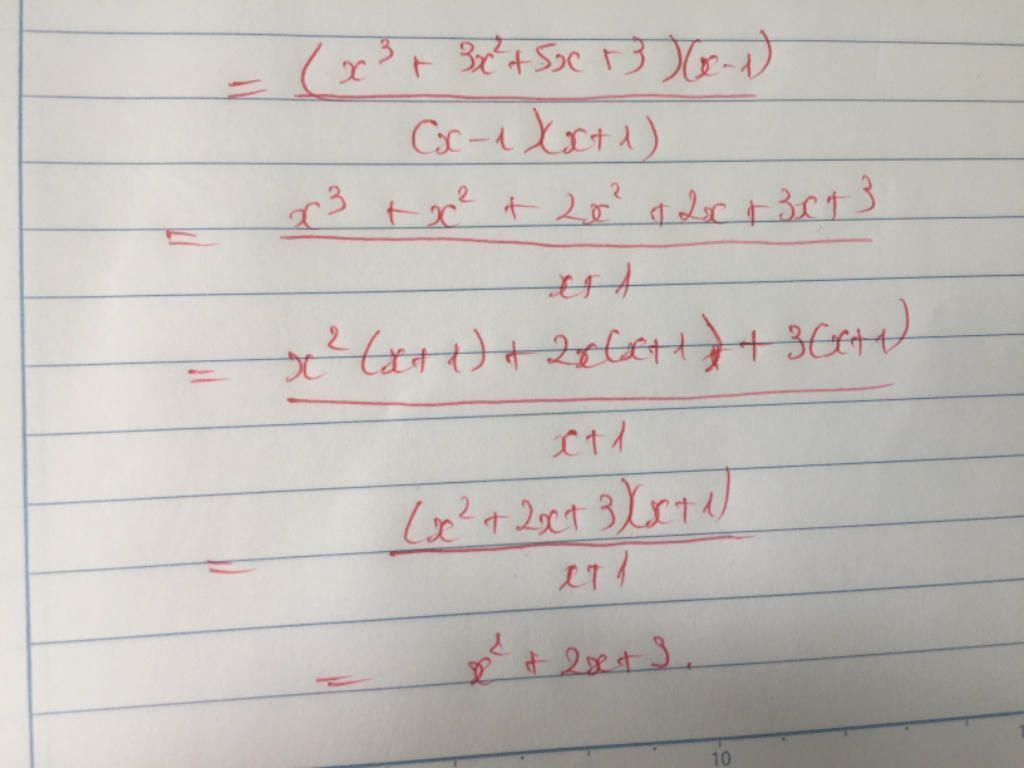 = (x³ + 3x² + 5x + 3)(x - 1)
(x - 1)(x + 1)
= x³ + x² + 2x² + 2x + 3x + 3
x + 1
= x² (x + 1) + 2x(x + 1) + 3(x + 1)
x + 1
= (x² + 2x + 3)(x + 1)
x + 1
= x² + 2x + 3.
10